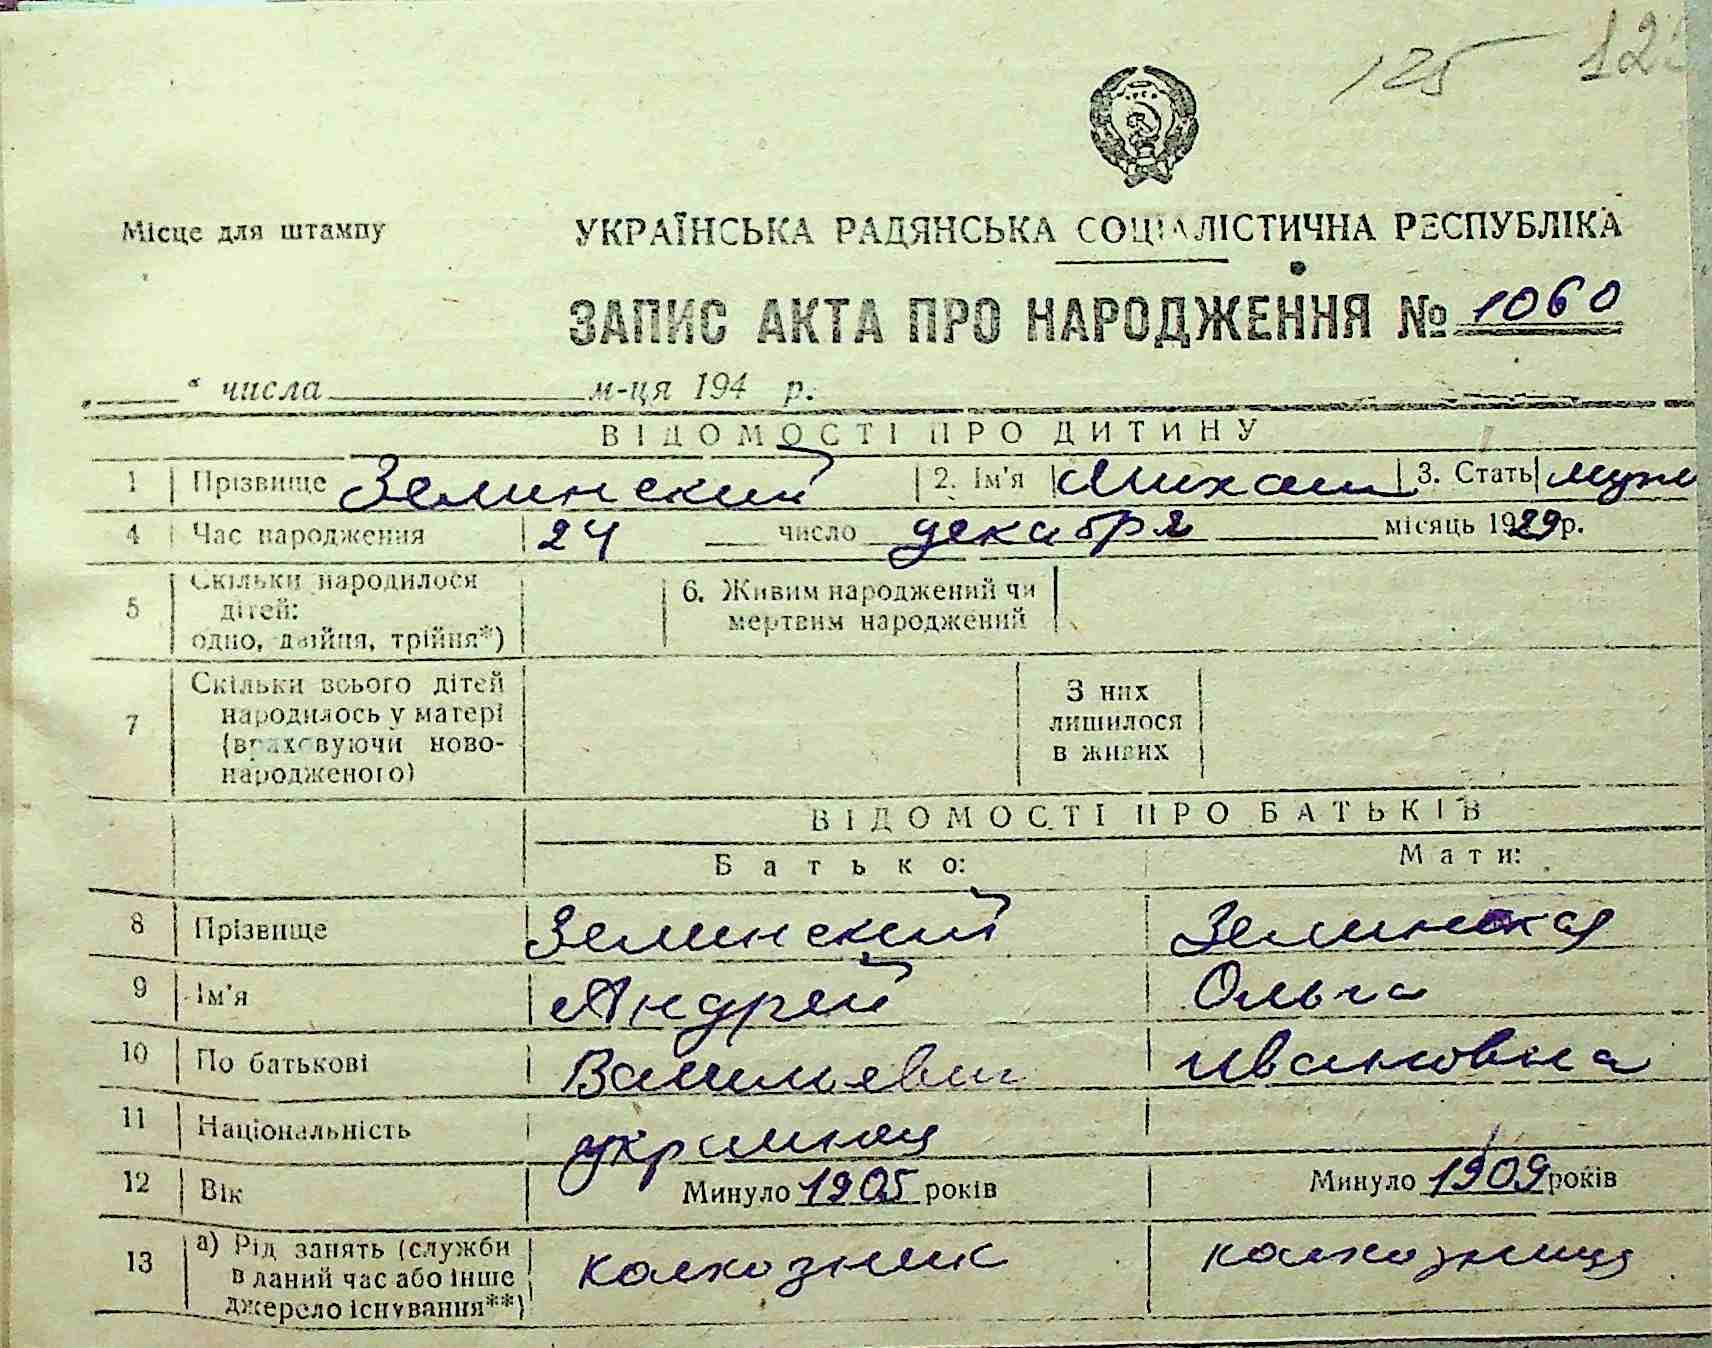 125 12
Місце для штампу
УКРАЇНСЬКА РАДЯНСЬКА СОЦІАЛІСТИЧНА РЕСПУБЛІКА
ЗАПИС АКТА ПРО НАРОДЖЕННЯ № 1060
„ “ числа м-ця 194 р.
ВІДОМОСТІ ПРО ДИТИНУ
1 Прізвище Зелинский 2. Ім'я Михаил 3. Стать муж
4 Час народження 24 число декабря місяць 1929 р.
5 Скільки народилося дітей: одно, двійня, трійня*) 6. Живим народжений чи мертвим народжений
7 Скільки всього дітей народилось у матері (враховуючи новонародженого) З них лишилося в живих
ВІДОМОСТІ ПРО БАТЬКІВ
Батько: Мати:
8 Прізвище Зелинский Зелинская
9 Ім'я Андрей Ольга
10 По батькові Васильевич Ивановна
11 Національність украинец
12 Вік Минуло 1905 років Минуло 1909 років
13 а) Рід занять (служби в даний час або інше джерело існування**) колхозник колхозница